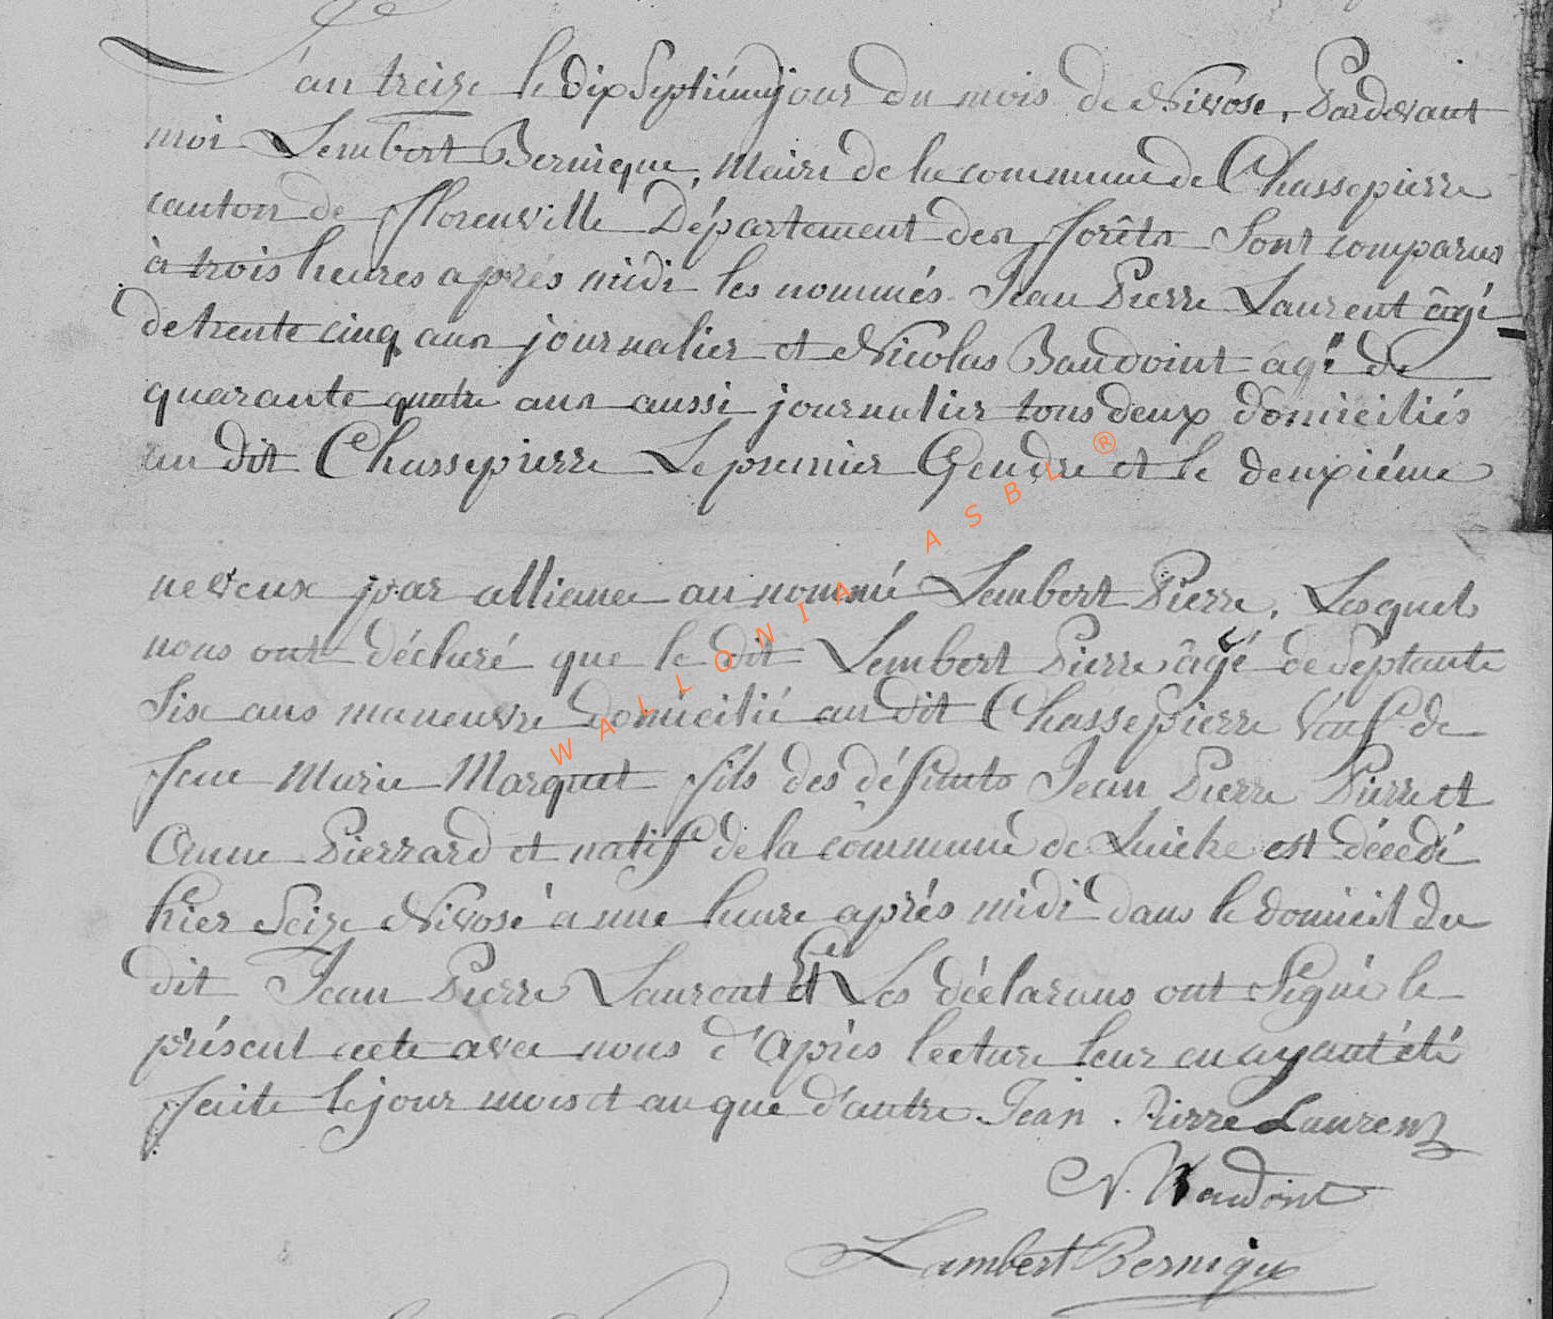 L'an treize le dix Septiéme jour du mois de Nivose, Pardevant
moi Lembert Bernique, Maire de la commune de Chassepierre
canton de florenville Département des forêts Sont comparus
à trois heures aprés midi les nommés Jean Pierre Laurent âgé
de trente cinq ans journalier et Nicolas Baudoint agé de
quarante quatre ans aussi journalier tous deux domiciliés
au dit Chassepierre Le premier Gendre et le deuxiéme
neveux par alliance au nommé Lembert Pierre, Lesquels
nous ont décluré que le dit Lembert Pierre âgé de Septante
Six ans maneuvre domicilié au dit Chassepierre Veuf de
feue Marie Marquet fils des défunts Jean Pierre Pierre et
Anne Pierrard et natif de la commune de est décédé
hier Seize Nivose à une heure aprés midi dans le domicil du
dit Jean Pierre Laurent Et Les déclarans ont Signé le
présent acte avec nous d'Après lecture leur en ayant été
faite le jour mois et an que d'autre Jean Pierre Laurent
N. Baudoint
Lambert Bernique
WALLONIA ASBL ®